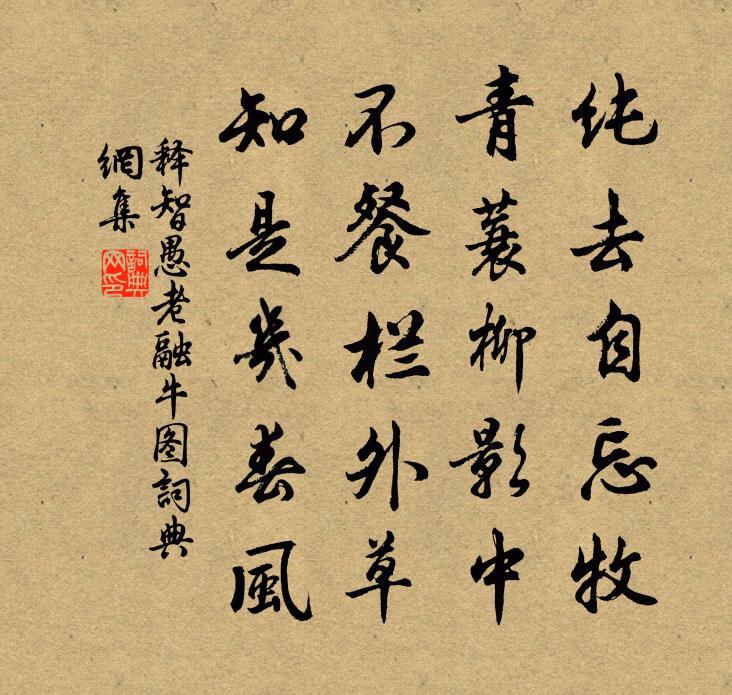 纯去自忘牧
青蓑柳影中
不餐栏外草
知是几春風
释智愚老融牛图詞典
網集
詞典
网印